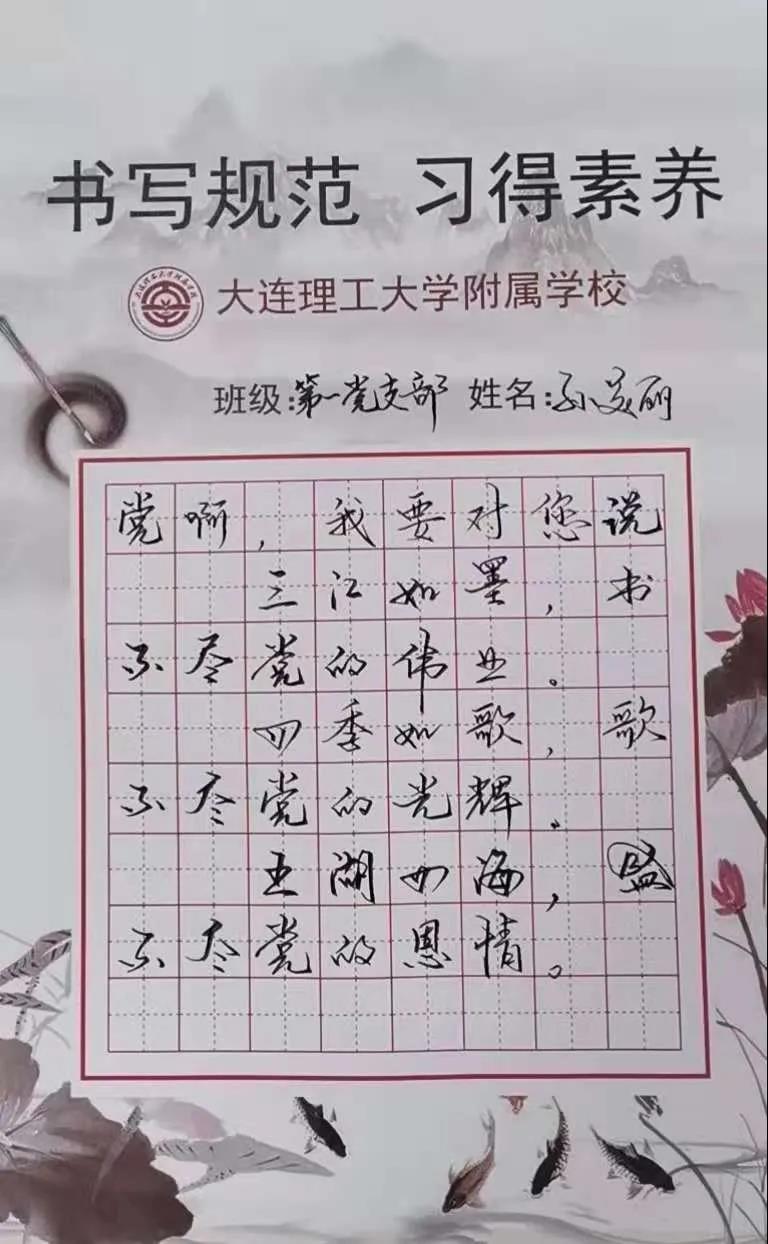 书写规范 习得素养
大连理工大学附属学校
班级:第一党支部 姓名:孙美丽
党啊，我要对您说
三江如墨，书
不尽党的伟业。
四季如歌，歌
不尽党的光辉。
五湖如海，盛
不尽党的恩情。